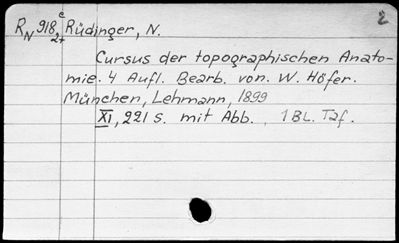 R_N 918,2+ e Rüdinger, N. 2
Cursus der topographischen Anato-
mie. 4 Aufl. Bearb. von. W. Höfer.
München, Lehmann, 1899
XI, 221 s. mit Abb. , 1 BL. Taf.